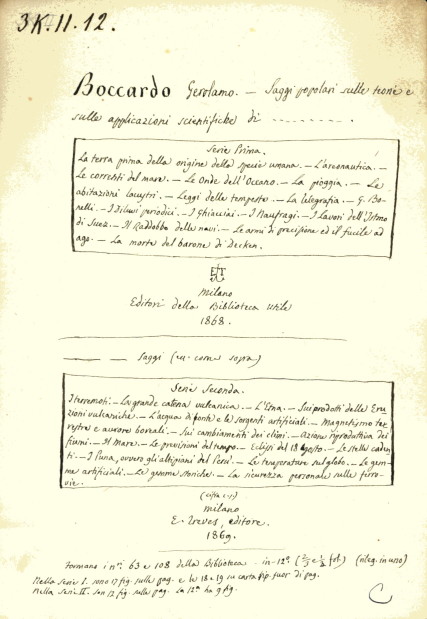 3K.11.12.
Boccardo Gerolamo. — Saggi popolari sulle teorie e
sulle applicazioni scientifiche di ..........
Serie Prima.
La terra prima della origine della specie umana. — L'areonautica. —
Le correnti del mare. — Le Onde dell'Oceano. — La pioggia. — Le
abitazioni lacustri. — Leggi delle tempeste. — La telegrafia. — G. Bo-
nelli. — I diluvi periodici. — I Ghiacciai. — I Naufragi. — I Lavori dell'Istmo
di Suez. — Il Raddobbo delle navi. — Le armi di precisione ed il fucile ad
ago. — La morte del barone di Decken.
Milano
Editori della Biblioteca Utile
1868.
Saggi (ec. come sopra)
Serie Seconda.
I terremoti. — La grande catena vulcanica. — L'Etna. — Sui prodotti delle Eru-
zioni vulcaniche. — L'acqua di fonti e le sorgenti artificiali. — Magnetismo ter-
restre e aurore boreali. — Sui cambiamenti dei climi. — Azione riproduttiva dei
fiumi. — Il Mare. — Le previsioni del tempo. — Eclissi del 18 Agosto. — Le stelle caden-
ti. — I Puna, ovvero gli altipiani del Perù. — Le temperature sul globo. — Le gem-
me artificiali. — Le gemme storiche. — La sicurezza personale sulle ferro-
vie.
Milano
E. Treves, editore.
1869.
formano i nⁱ. 63 e 108 della Biblioteca — in-12°. (rileg. in uno)
Nella serie I. sono 17 fig. sulle pag. e le 18 e 19 su carta fuor di pag.
Nella serie II. son 12 fig. sulle pag. La 12ª ha 9 fig.
C